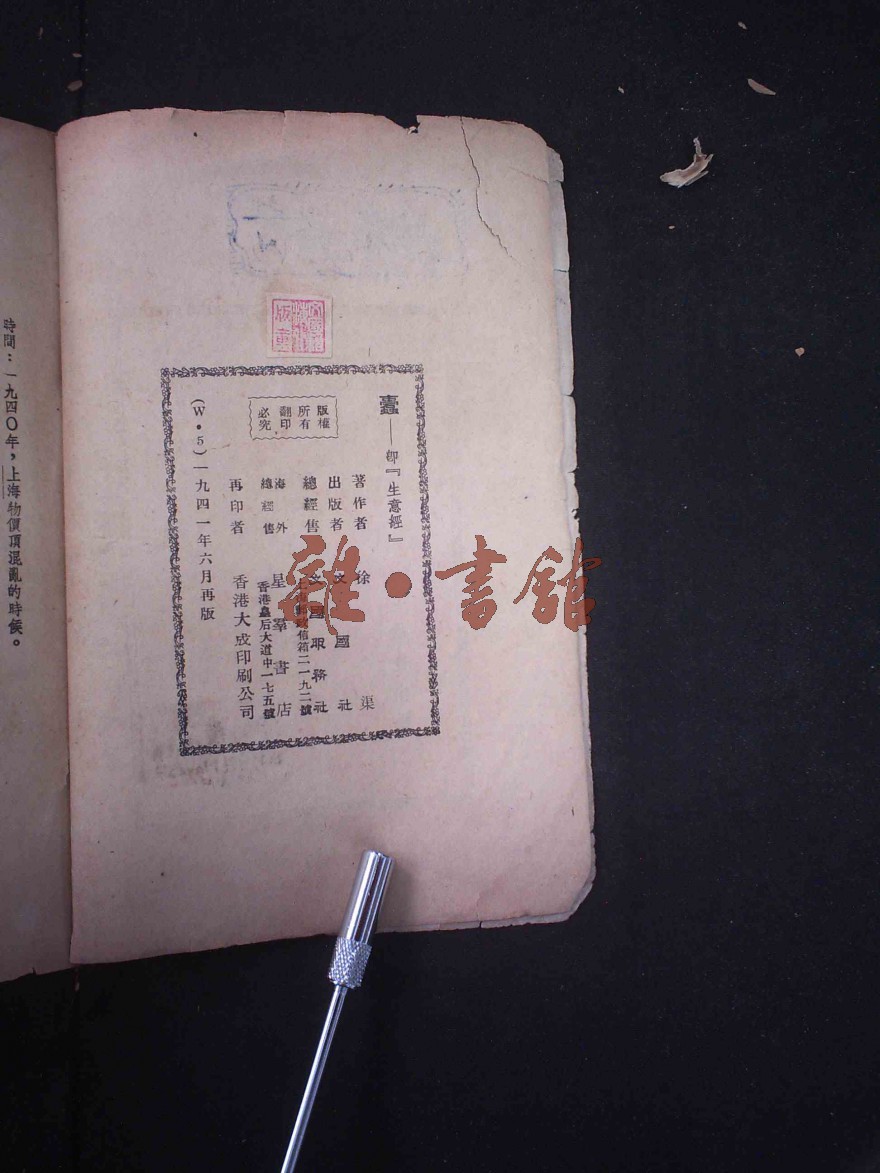 蠹——即『生意經』
著作者　徐渠
出版者　文國社
總經售　文國服務社
上海郵政信箱二一九二號
海外總經售　星羣書店
香港皇后大道中一七五號
再印者　香港大成印刷公司
(W·5)一九四一年六月再版
版權
所有
翻印
必究
時間：一九四〇年，上海物價頂混亂的時候。
雜·書館